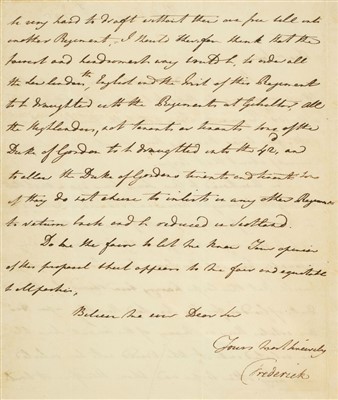 be very hard to draft without their own free will into
another Regiment, I should therefore think that the
fairest and handsomest way would be, to order all
the Low landers, English and the Irish of this Regiment
to be draughted into the Regiments at , All
the Highlanders, not tenants or tenants sons of the
Duke of Gordon to be draughted into the 42d, and
to allow the Duke of Gordons tenants and tenants sons
if they do not chuse to inlist in any other Regiment
to return back and be reduced in Scotland.
Do me the favor to let me know Your opinion
of this proposal which appears to me fair and equitable
to all parties,
Believe me ever Dear Sir
Yours most sincerely
Frederick